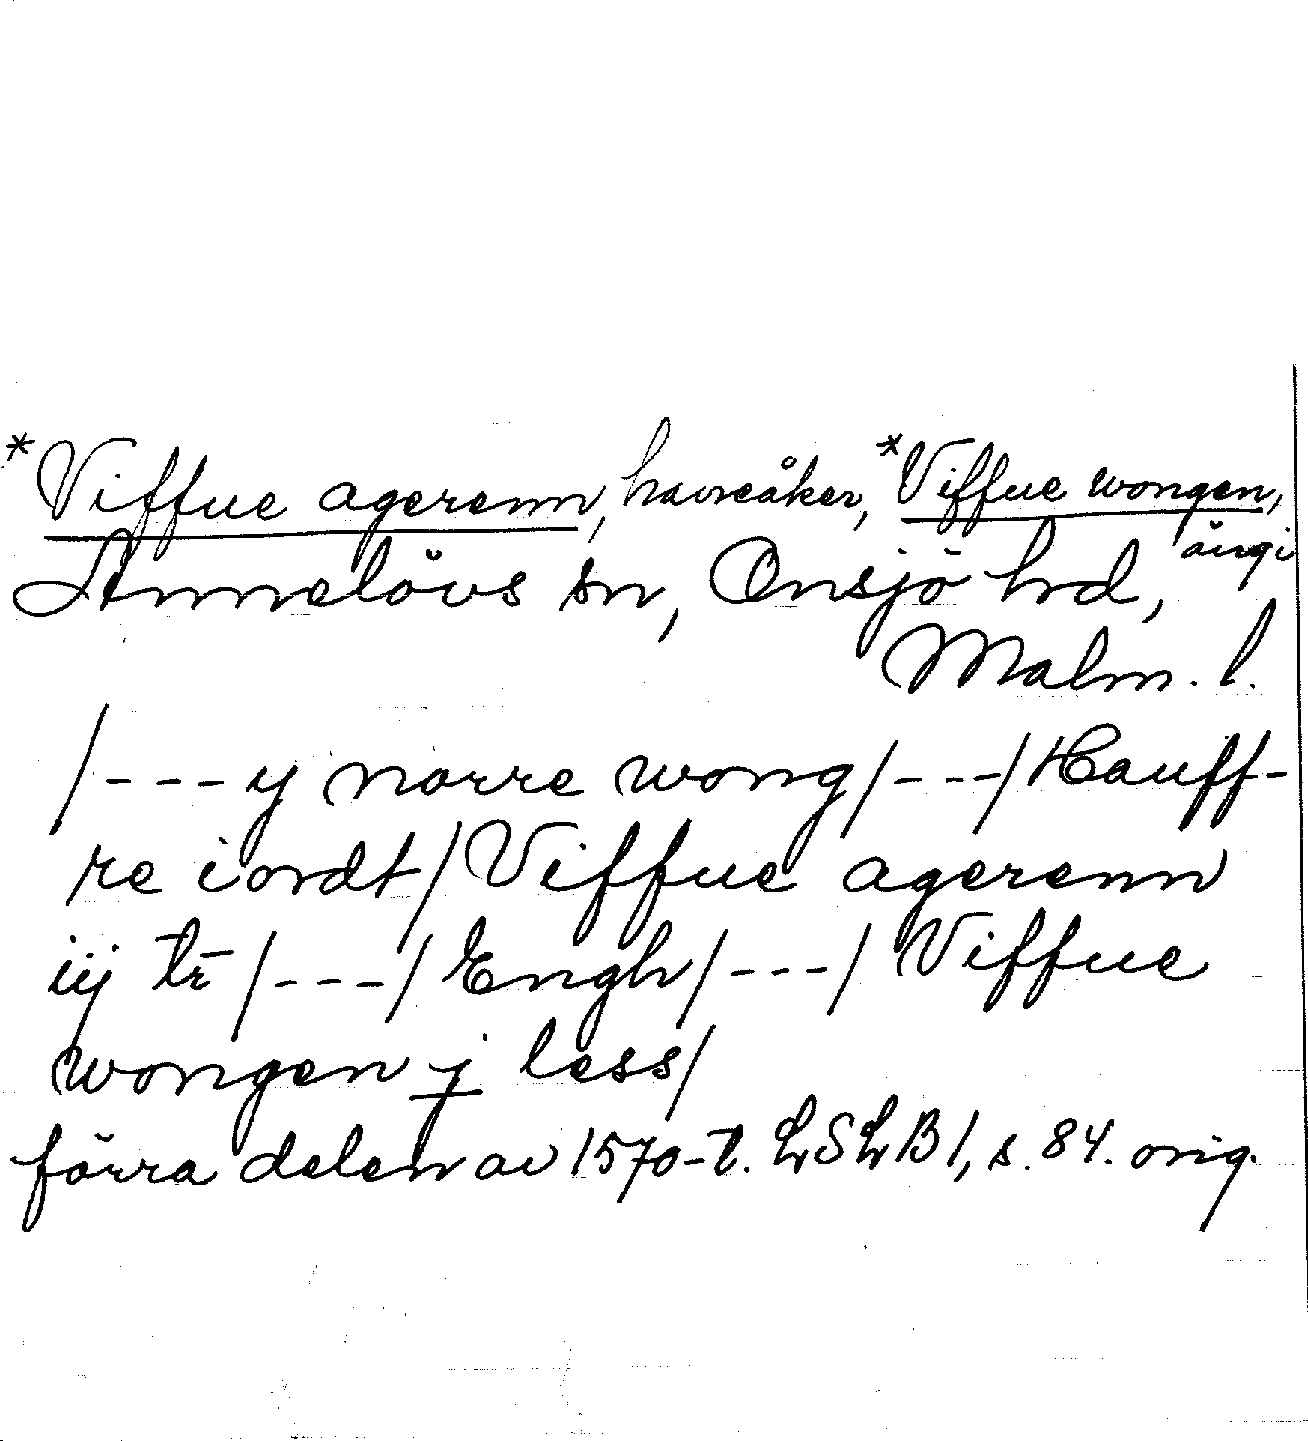 *Viffue agerenn, havreåker, *Viffue wongen,
äng i
Annelövs sn, Onsjö hd,
Malm. l.
/---y norre wong/---/Hauff-
re iordt/Viffue agerenn
iij tr/---/Engh/---/Viffue
wongen j less/
förra delen av 1570-t. LSLB 1, s. 84. orig.